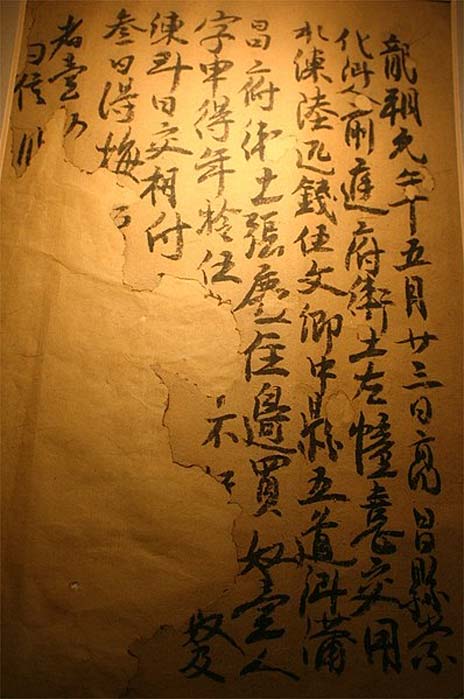 龍朔元年五月廿三日高昌縣崇
化鄉人前庭府衛士左憧憙交用
水練陸疋錢伍文柳中縣五道鄉蒲
昌府衛士張慶住邊買奴壹人
字申得年拾伍 不 及
練到日交相付
叁日得悔
者壹